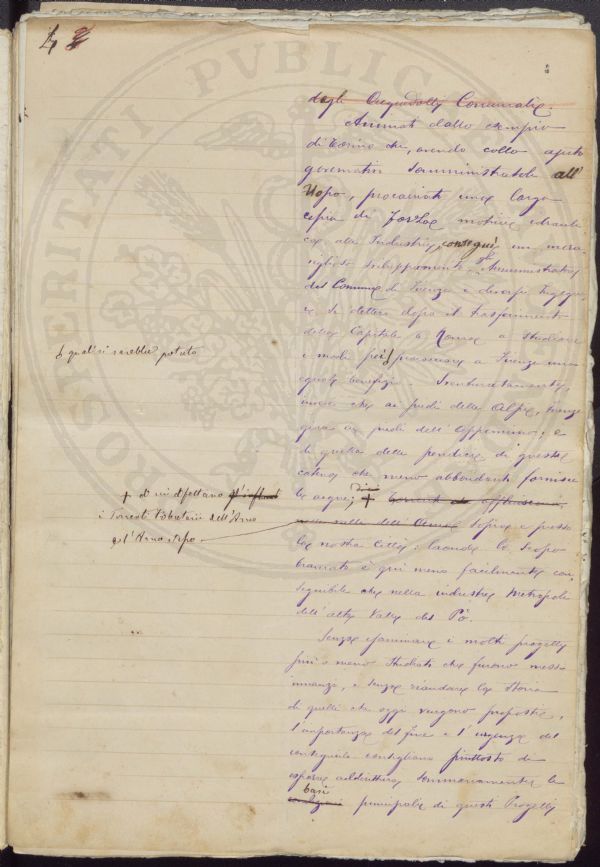 4
degli Acquedotti Comunali.
Animati dallo esempio
di Torino che, avendo colto
governativi somministratole all'
uopo, procacciati una larga
copia di Forza motrice idrauli
ca alla Industria, conseguì un mera
viglioso sviluppamento, l'Amministrazione
del Comune di Firenze e diversi Ingegne
ri si dettero dopo il trasferimento
della Capitale a Roma a studiare
i modi pei quali si sarebbe potuto procacciare a Firenze
eguale benefizio. Sventuratamente,
invece che ai piedi delle Alpi, Firenze
ai piedi dell'Appennino, e
di quella della pendice di questa
catena che meno abbondanti fornisce
le acque;
+ di cui difettano
i Torrenti tributari dell'Arno
e l'Arno stesso
sopra e presso
la nostra Città: laonde lo scopo
è qui meno facilmente con
seguibile che nella industre Metropoli
dell'alta Valle del Pò.
Senza esaminare i molti progetti
più o meno studiati che furono messi
innanzi, e senza riandare la storia
di quelli che oggi vengono proposti,
l'importanza del fine e l'urgenza del
conseguirlo consigliano piuttosto di
esporre addirittura sommariamente le
basi principali di questi Progetti